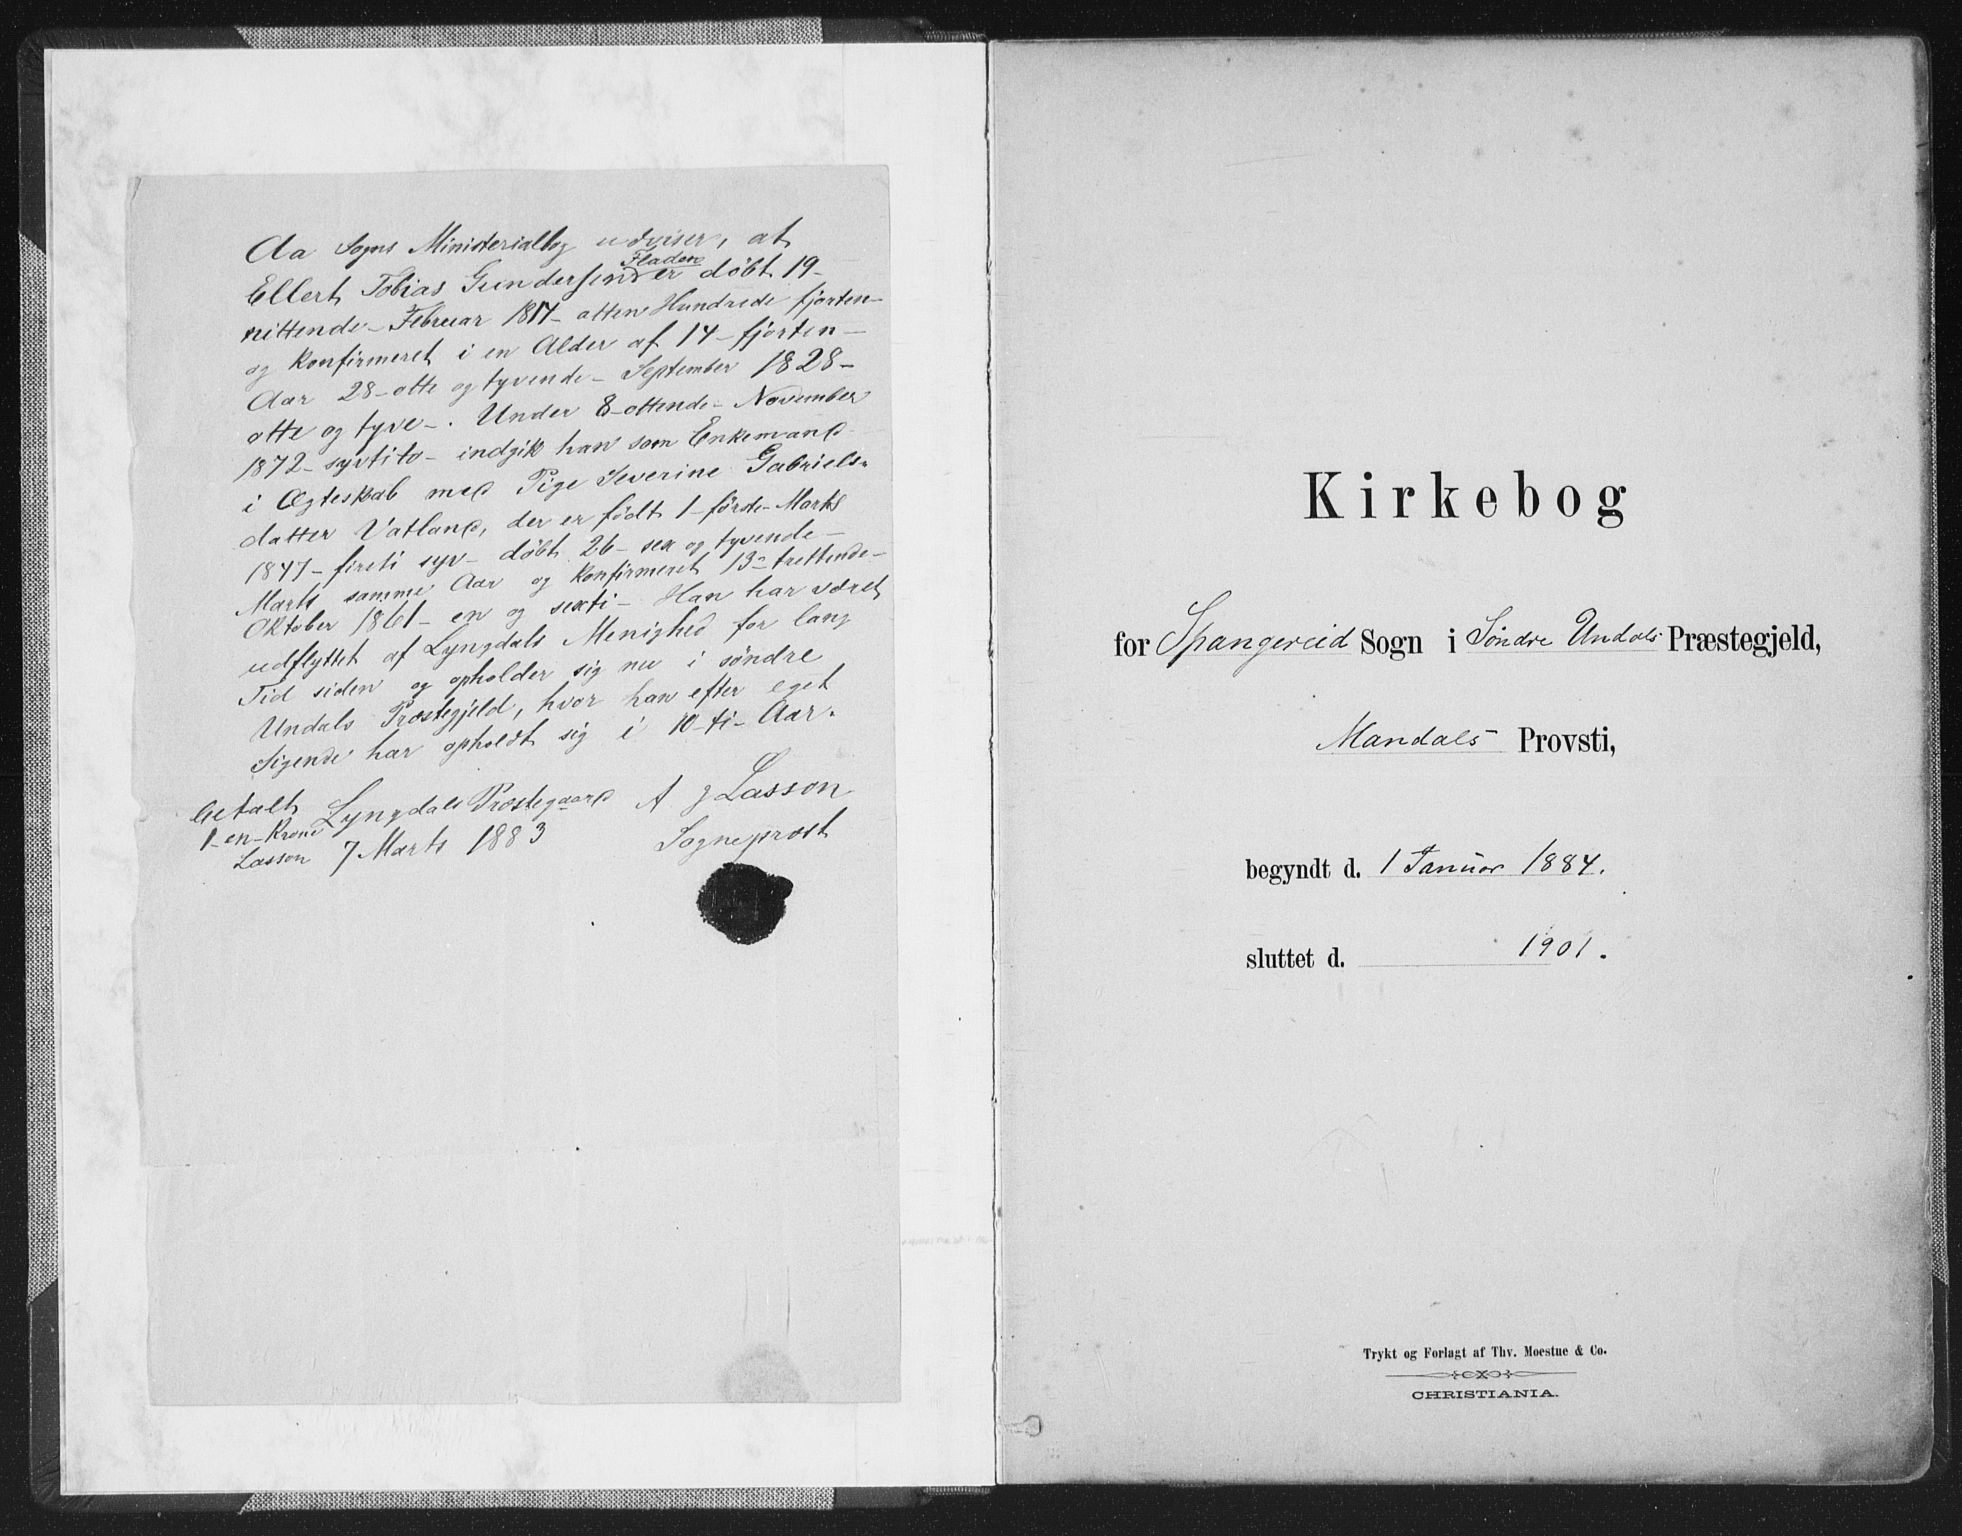 Aa Sogns Ministerialbog udviser, at
Fladen
Ellert Tobias Gundersen er døbt 19-
nittende- Februar 1814- atten Hundrede fjorten-
og konfirmeret i en Alder af 14- fjorten-
Aar 28- otte og tyvende- September 1828-
otte og tyve-. Under 8- ottende- November
1872- syvtito- indgik han som Enkemand
i Ægteskab med Pige Severine Gabriels-
datter Vatland, der er født 1- første- Marts
1847- firti syv- døbt 26- sex og tyvende-
Marts samme Aar og konfirmeret 13- trettende-
Oktober 1861- en og sexti- Han har været
udflyttet af Lyngdals Menighed for lang
Tid siden og opholder sig nu i søndre
Undals Præstegjeld, hvor han efter eget
Sigende har opholdt sig i 10- ti- Aar.
betalt Lyngdals Præstegaard A J Lasson
1- en- Krone 7 Marts 1883 Sogneprest
Lasson
Kirkebog
for Spangereid Sogn i Søndre Undals Præstegjeld,
Mandals Provsti,
begyndt d. 1 Januar 1884.
sluttet d. 1901.
Trykt og Forlagt af Thv. Moestue & Co.
CHRISTIANIA.